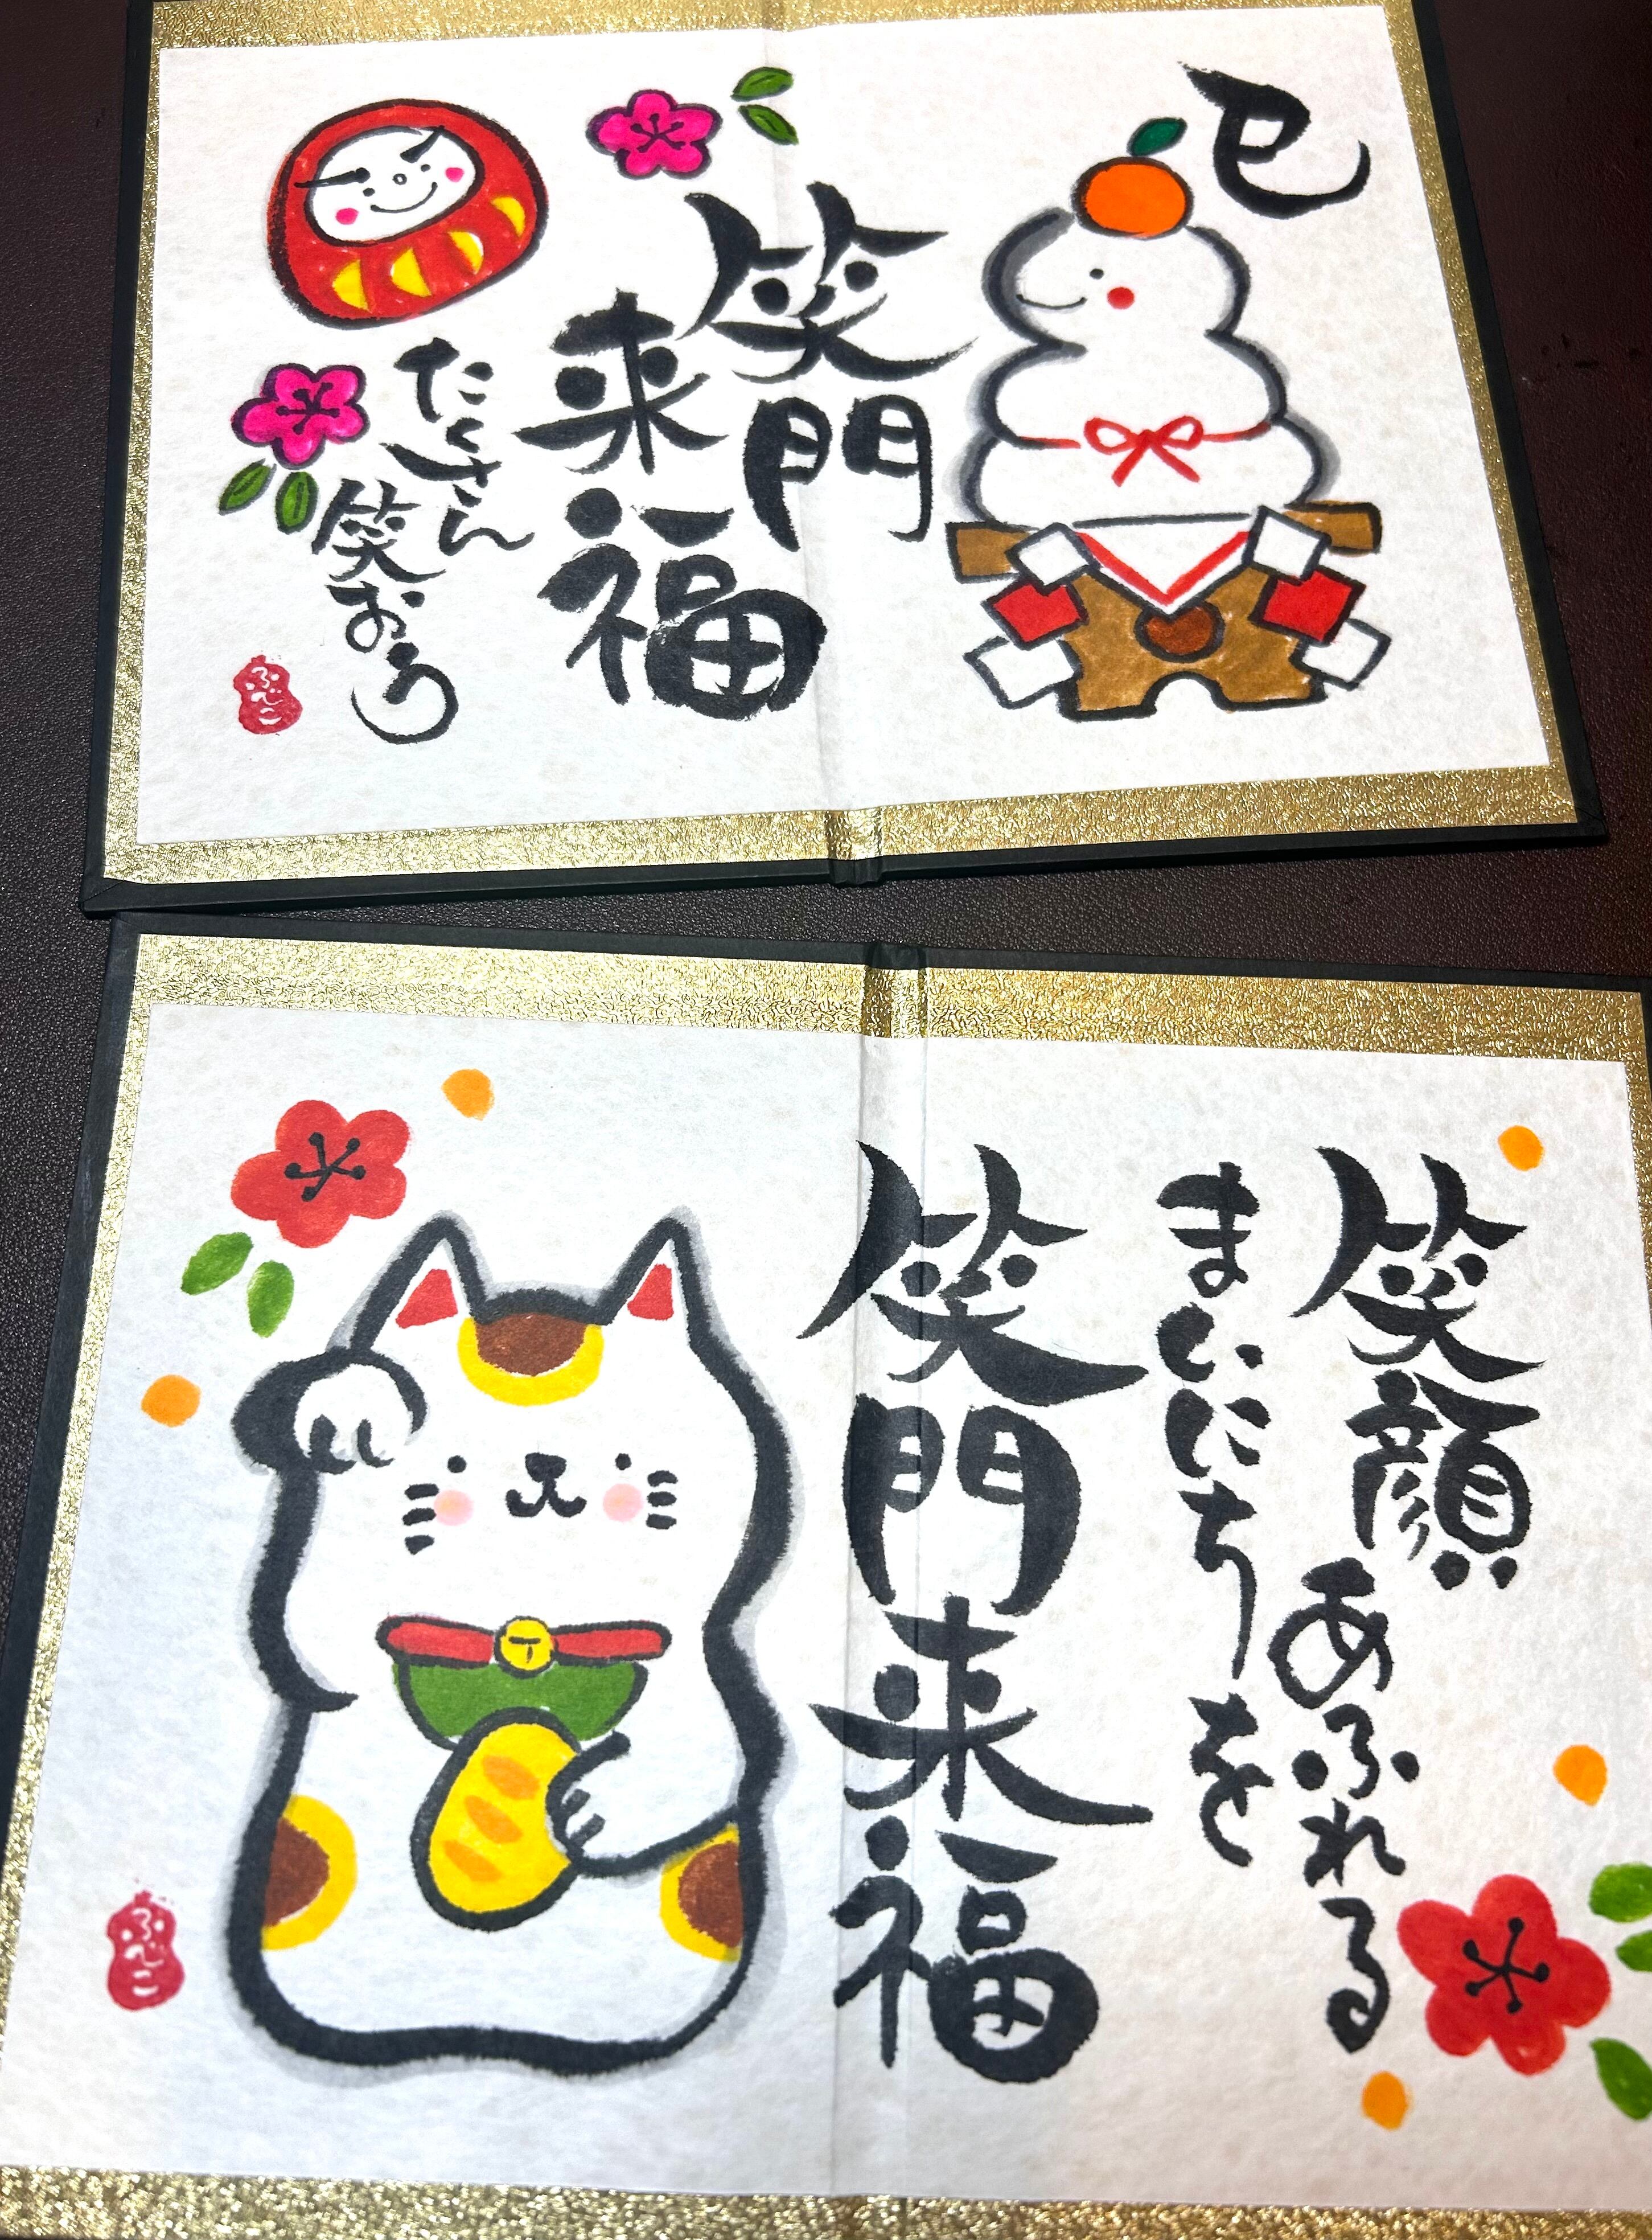 巳
笑門
来福
たくさん
笑おう
ふじこ
笑顔あふれる
まいにちを
笑門来福
ふじこ